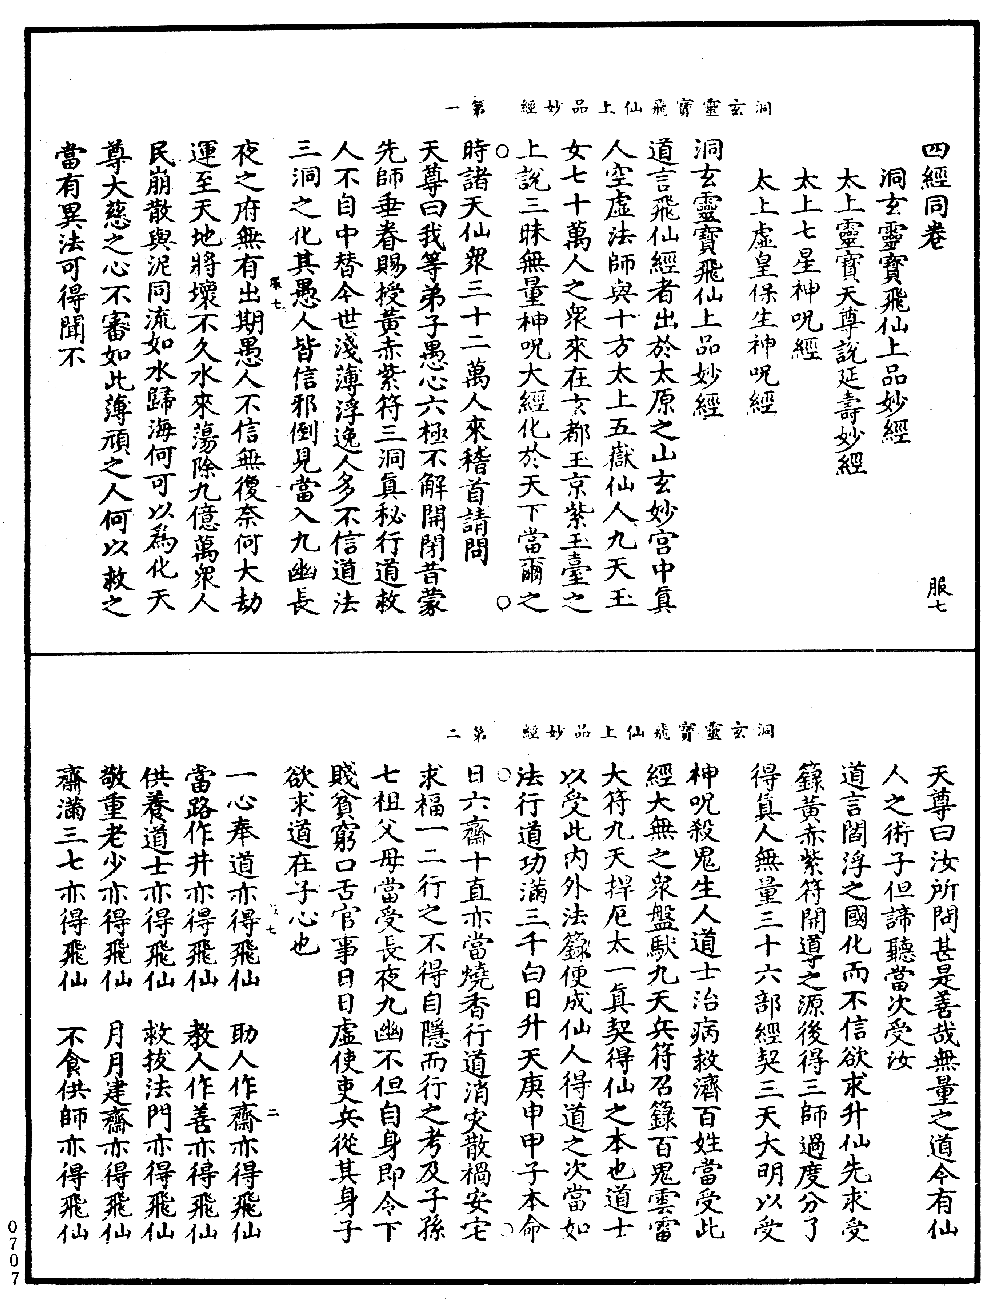 洞玄靈寶飛仙上品妙經　第一
四經同卷
服七
洞玄靈寶飛仙上品妙經
太上靈寶天尊說延壽妙經
太上七星神呪經
太上虛皇保生神呪經
洞玄靈寶飛仙上品妙經
道言飛仙經者出於太原之山玄妙宮中真
人空虛法師與十方太上五嶽仙人九天玉
女七十萬人之衆來在玄都玉京紫玉臺之
上說三昧無量神呪大經化於天下當爾之
時諸天仙衆三十二萬人來稽首請問
天尊曰我等弟子愚心六極不解開閉昔蒙
先師垂眷賜授黃赤紫符三洞真秘行道救
人不自中替今世淺薄浮逸人多不信道法
三洞之化其愚人皆信邪倒見當入九幽長
服七
夜之府無有出期愚人不信無復奈何大劫
運至天地將壞不久水來蕩除九億萬衆人
民崩散與泥同流如水歸海何可以為化天
尊大慈之心不審如此薄頑之人何以救之
當有異法可得聞不
洞玄靈寶飛仙上品妙經　第二
天尊曰汝所問甚是善哉無量之道今有仙
人之術子但諦聽當次受汝
道言閻浮之國化而不信欲求升仙先求受
籙黃赤紫符開導之源後得三師過度分了
得真人無量三十六部經契三天大明以受
神呪殺鬼生人道士治病救濟百姓當受此
經大無之衆盤馱九天兵符召籙百鬼雲雷
大符九天捍厄太一真契得仙之本也道士
以受此內外法籙便成仙人得道之次當如
法行道功滿三千白日升天庚申甲子本命
日六齋十直亦當燒香行道消災散禍安宅
求福一二行之不得自隱而行之考及子孫
七祖父母當受長夜九幽不但自身即令下
賤貧窮口舌官事日日虛使吏兵從其身子
欲求道在子心也
二
一心奉道亦得飛仙　助人作齋亦得飛仙
當路作井亦得飛仙　教人作善亦得飛仙
供養道士亦得飛仙　救拔法門亦得飛仙
敬重老少亦得飛仙　月月建齋亦得飛仙
齋滿三七亦得飛仙　不食供師亦得飛仙
0707